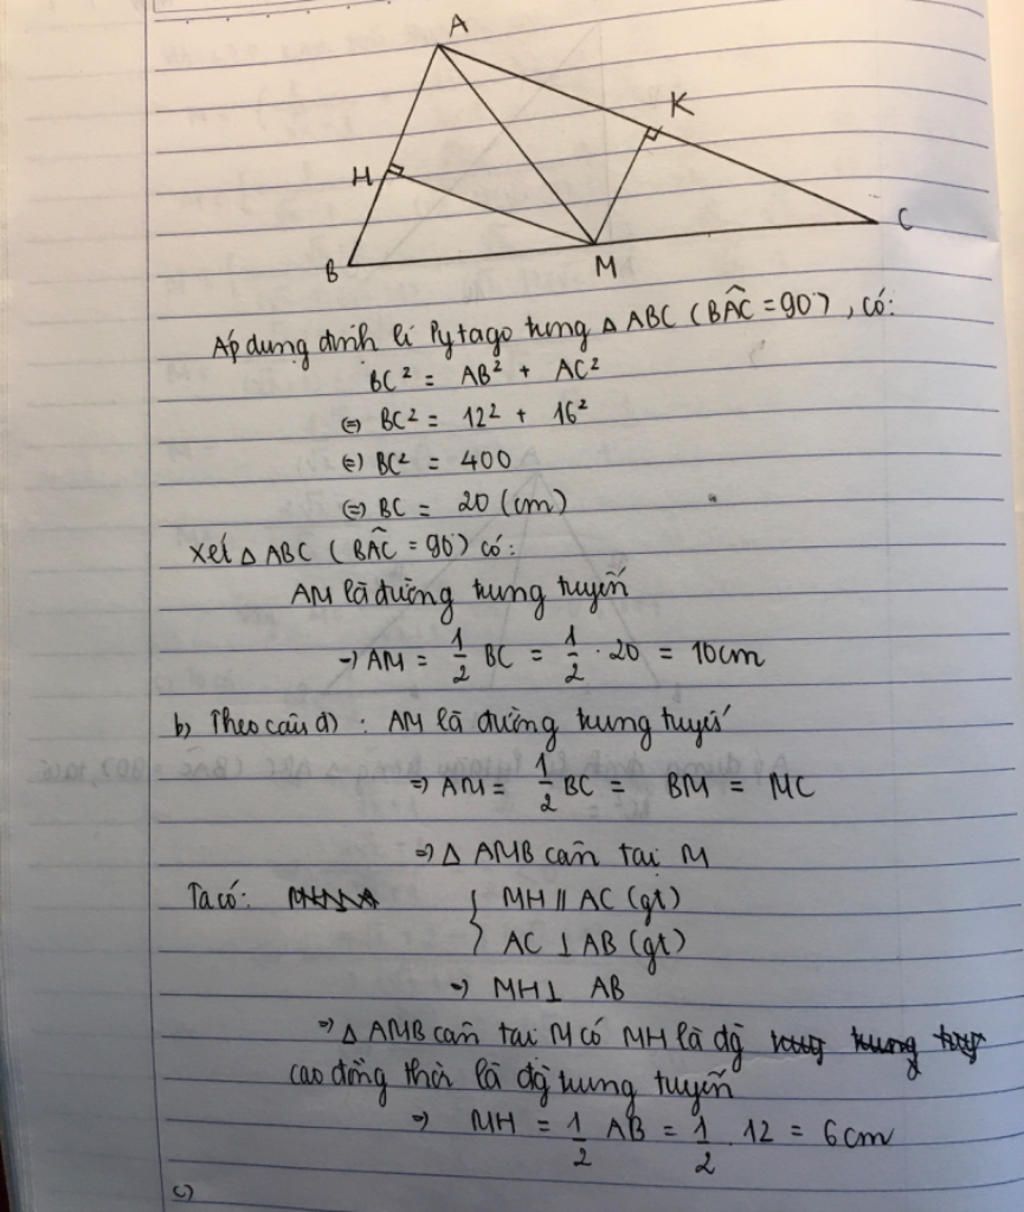 A
K
H
C
B
M
Áp dụng định lí Pytago trong Δ ABC (BAC = 90°), có:
BC² = AB² + AC²
(=) BC² = 12² + 16²
(=) BC² = 400
(=) BC = 20 (cm)
Xét Δ ABC (BAC = 90°) có:
AM là đường trung tuyến
-) AM = 1/2 BC = 1/2 · 20 = 10cm
b) Theo câu a) : AM là đường trung tuyến
=) AM = 1/2 BC = BM = MC
=) Δ AMB cân tại M
Ta có: { MH // AC (gt)
AC ⊥ AB (gt)
=) MH ⊥ AB
=) Δ AMB cân tại M có MH là đg
cao đồng thời là đg trung tuyến
=) MH = 1/2 AB = 1/2 . 12 = 6cm
c)